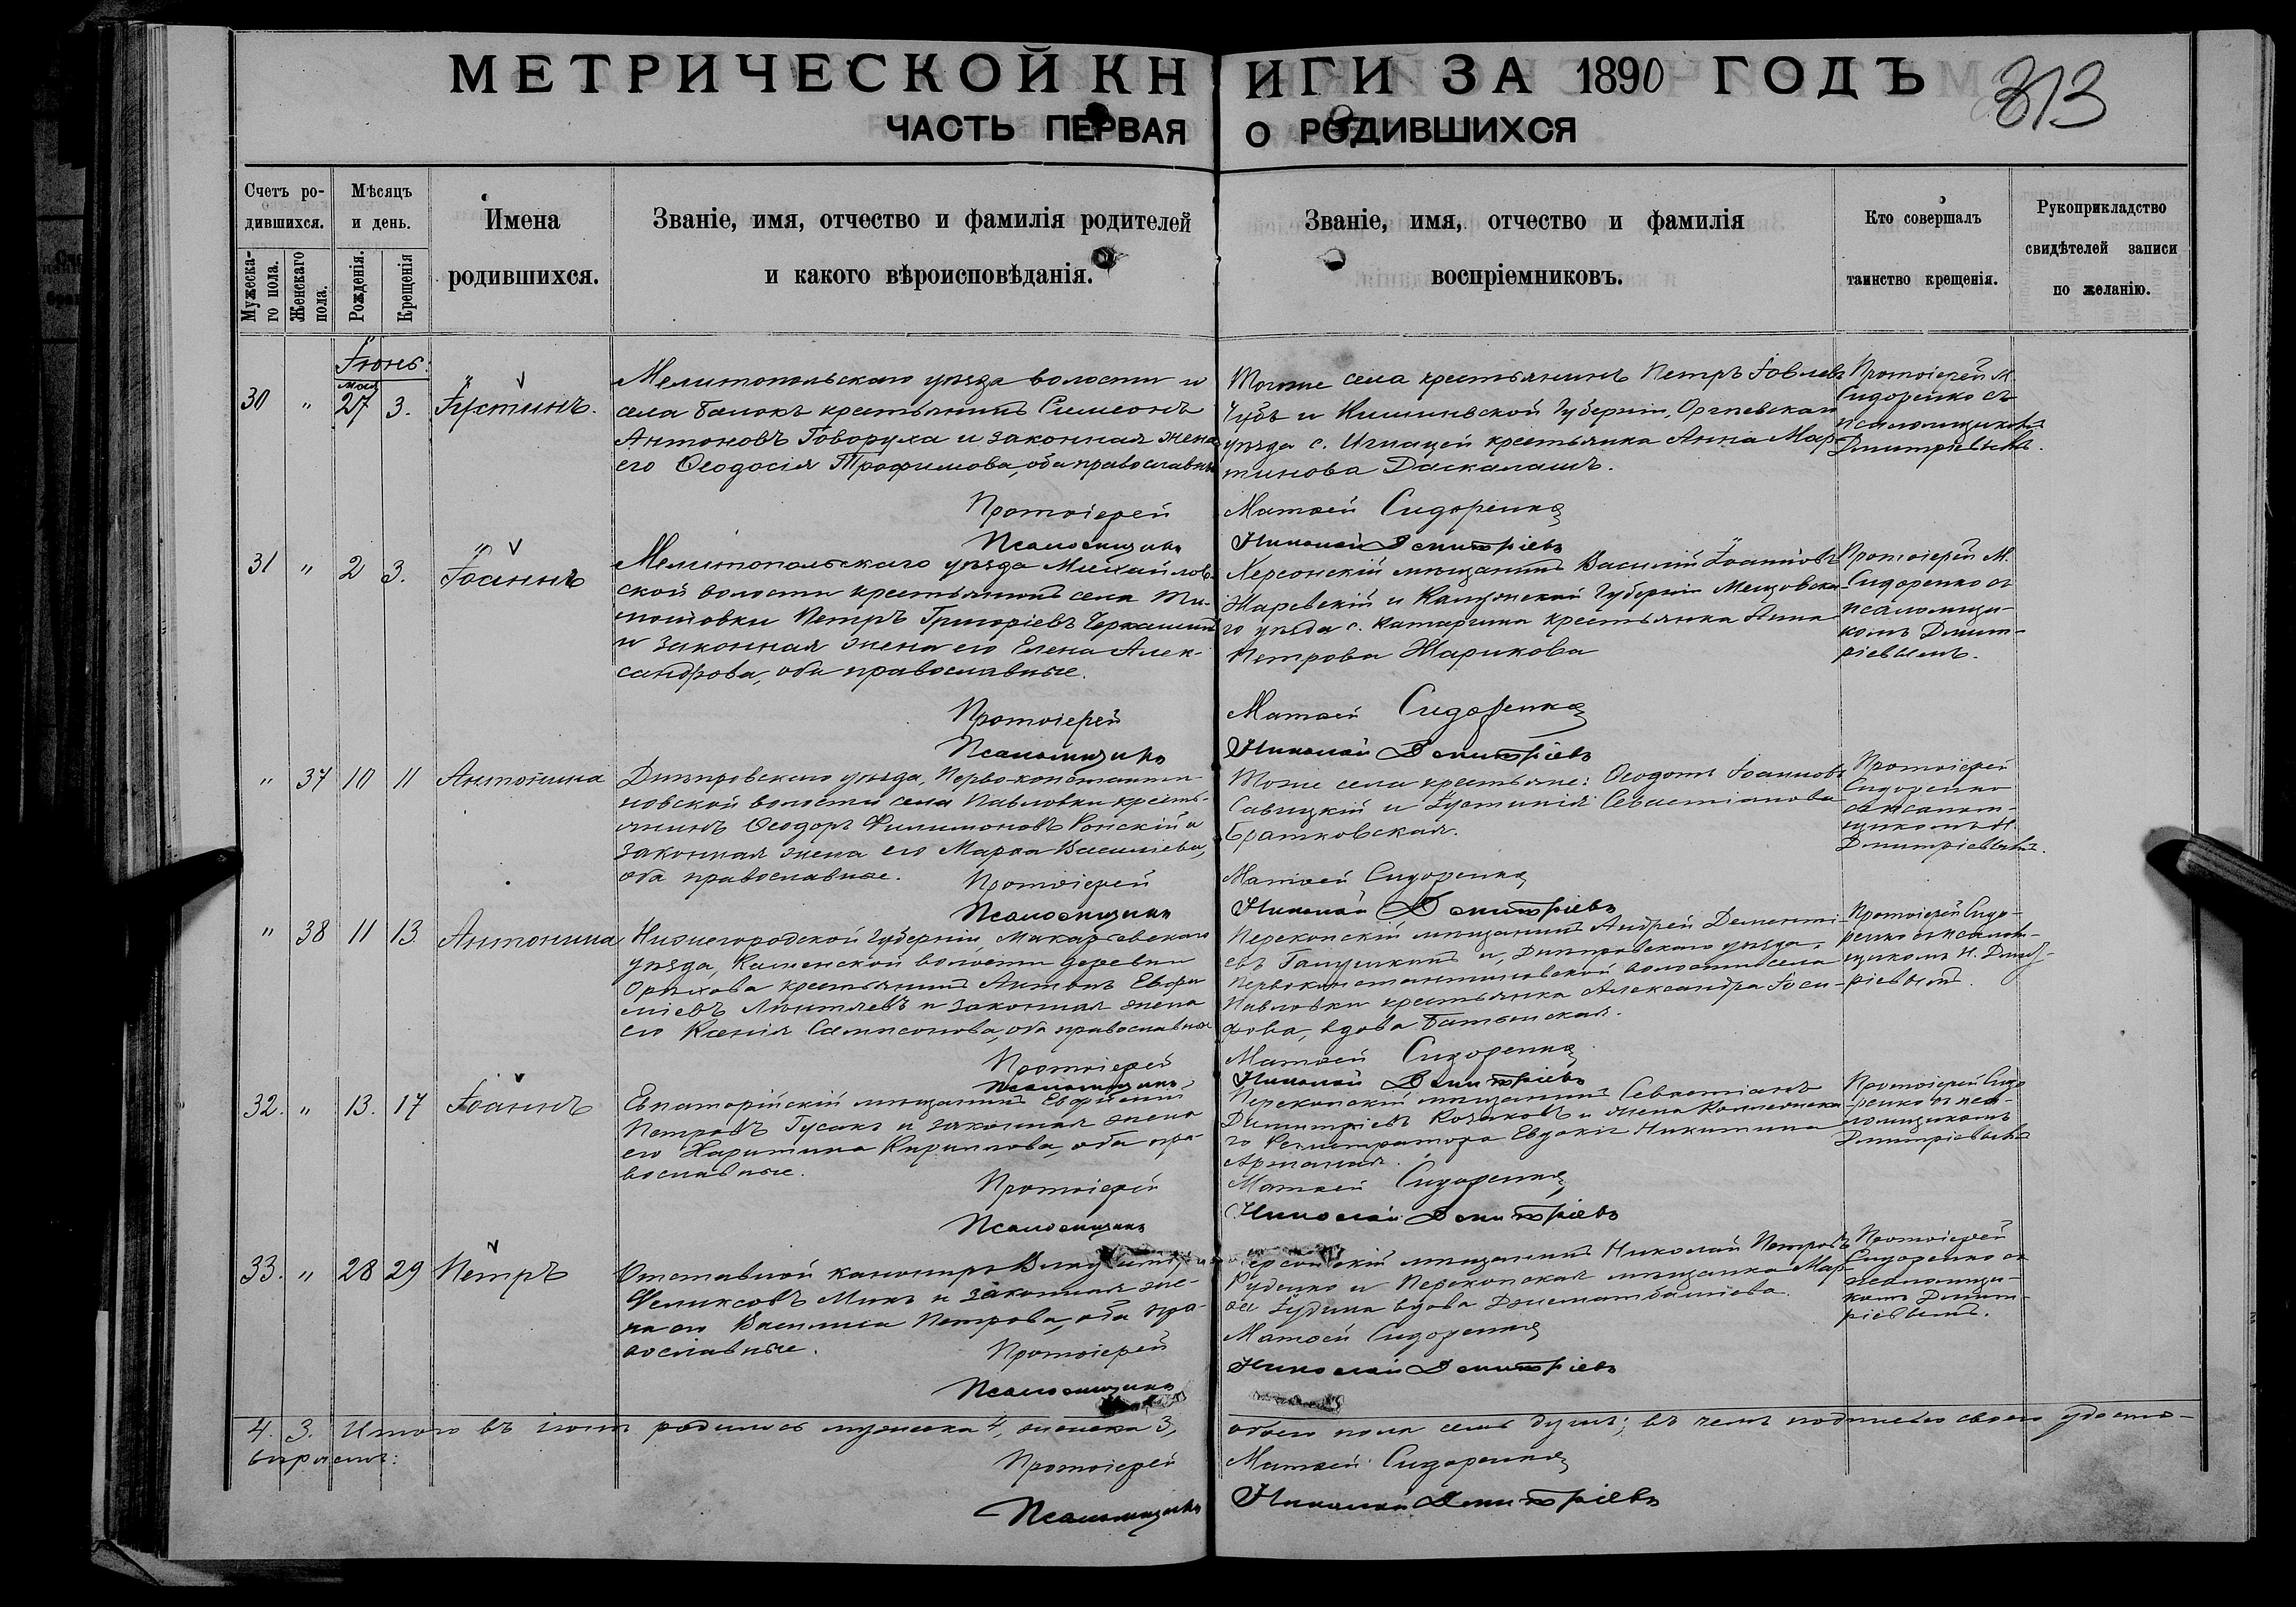 МЕТРИЧЕСКОЙ КНИГИ ЗА 1890 ГОДЪ
313
ЧАСТЬ ПЕРВАЯ О РОДИВШИХСЯ
Счетъ ро-
дившихся.
Мужеска-
го пола.
Женскаго
пола.
Мѣсяцъ
и день.
Рожденія.
Крещенія
Имена
родившихся.
Званіе, имя, отчество и фамилія родителей
и какого вѣроисповѣданія.
Званіе, имя, отчество и фамилія
воспріемниковъ.
Кто совершалъ
таинство крещенія.
Рукоприкладство
свидѣтелей записи
по желанію.
Іюнь.
мая
30 " 27 3. Іустинъ.
Мелитопольскаго уѣзда волости и
села Балокъ крестьянинъ Симеонъ
Антоновъ Говоруха и законная жена
его Ѳеодосія Трофимова, оба православные
Тогоже села крестьянинъ Петръ Іовлевъ
Чубъ и Кишиневской Губерніи, Оргѣевскаго
уѣзда с. Игнацей крестьянка Анна Мар-
тинова Даскалашъ.
Протоіерей М.
Сидоренко съ
псаломщикомъ
Дмитріевымъ.
Протоіерей Матѳей Сидоренко
Псаломщикъ Николай Дмитріевъ
31 " 2 3. Іоаннъ
Мелитопольскаго уѣзда Михайлов-
ской волости крестьянинъ села Ти-
мошовки Петръ Григоріевъ Черкашинъ
и законная жена его Елена Алек-
сандрова, оба православные.
Херсонскій мѣщанинъ Василій Іоанновъ
Жаревскій и Калужской Губерніи Мещовска-
го уѣзда с. Катаргина крестьянка Анна
Петрова Жарикова
Протоіерей М.
Сидоренко съ
псаломщи-
комъ Димит-
ріевымъ.
Протоіерей Матѳей Сидоренко
Псаломщикъ Николай Дмитріевъ
" 37 10 11 Антонина
Днѣпровскаго уѣзда, Перво-константи-
новской волости села Павловки кресть-
янинъ Ѳеодоръ Филимоновъ Ронскій и
законная жена его Марѳа Василіева,
оба православные.
Тогоже села крестьяне: Ѳеодотъ Іоанновъ
Савицкій и Іустинія Севастіанова
Братковская.
Протоіерей
Сидоренко
съ псалом-
щикомъ Н.
Дмитріевымъ.
Протоіерей Матѳей Сидоренко
Псаломщикъ Николай Дмитріевъ
" 38 11 13 Антонина
Нижегородской Губерніи, Макарьевскаго
уѣзда, Каменской волости деревни
Орѣхова крестьянинъ Антонъ
его Ксенія Сампсонова, оба православные
Перекопскій мѣщанинъ Андрей Дементі-
евъ Галушкинъ и, Днѣпровскаго уѣзда,
Первоконстантиновской волости села
Павловки крестьянка Александра Іоси-
фова, вдова Батынская.
Протоіерей Сидо-
ренко съ псалом-
щикомъ Н. Дмит-
ріевымъ.
Протоіерей Матѳей Сидоренко
Псаломщикъ Николай Дмитріевъ
32. " 13. 17 Іоаннъ
Евпаторійскій мѣщанинъ Евфимій
Петровъ Гусакъ и законная жена
его Харитина Кириллова, оба пра-
вославные.
Перекопскій мѣщанинъ Севастіанъ
Димитріевъ Козаковъ и жена Коллежска-
го Регистратора Евдокія Никитина
Протоіерей Сидо-
ренко съ пса-
ломщикомъ
Дмитріевымъ
Протоіерей Матѳей Сидоренко
Псаломщикъ Николай Дмитріевъ
33. " 28 29 Петръ
Отставной канониръ
Феликсовъ и законная же-
на его Василиса Петрова, оба пра-
вославные.
Херсонскій мѣщанинъ Николай Петровъ
Руденко и Перекопская мѣщанка Мар-
ѳа вдова
Протоіерей
Сидоренко съ
псаломщи-
комъ Димит-
ріевымъ.
Протоіерей Матѳей Сидоренко
Псаломщикъ Николай Дмитріевъ
4. 3. Итого въ іюнѣ родилось мужеска 4, женска 3, обоего пола семь душъ; въ чемъ подписью своею удосто-
вѣряемъ:
Протоіерей Матѳей Сидоренко
Псаломщикъ Николай Дмитріевъ